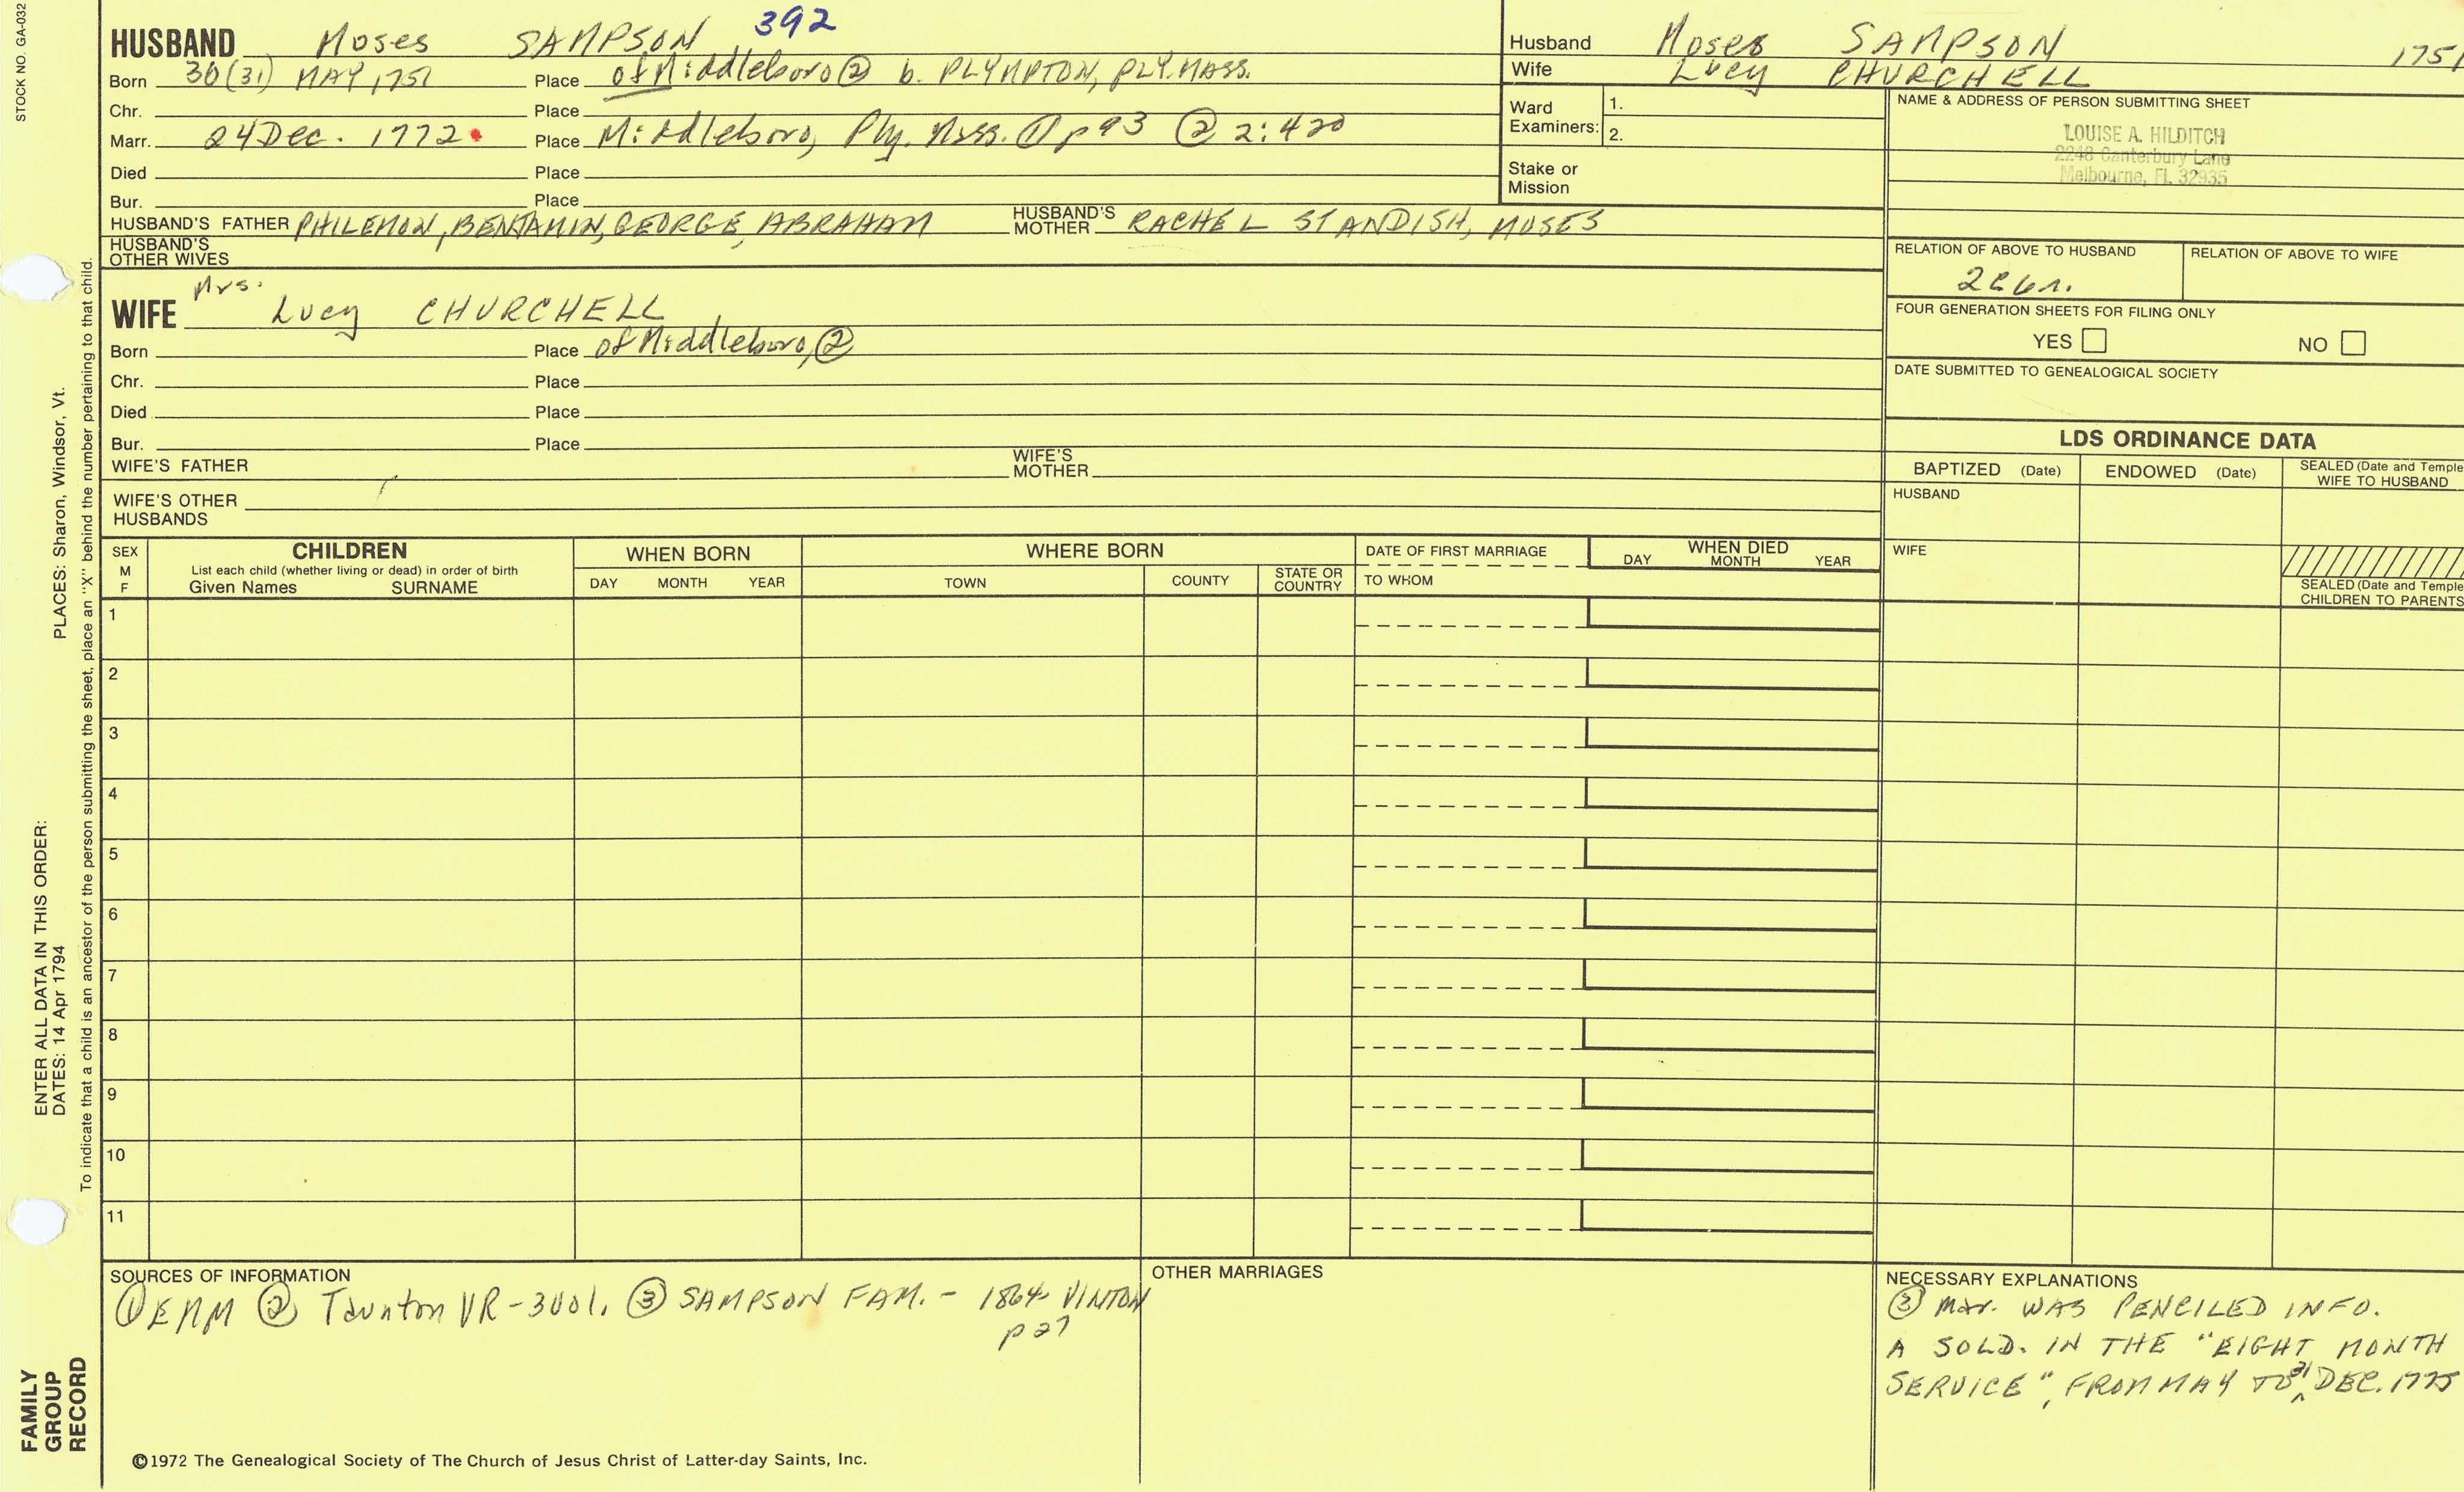 STOCK NO. GA-032
392
HUSBAND Moses SAMPSON
Born 30(31) MAY 1751 Place of Middleboro ② b. PLYMPTON, PLY. MASS.
Chr. Place
Marr. 24 Dec. 1772 Place Middleboro, Ply. Mass. ① p 93 ② 2:420
Died Place
Bur. Place
HUSBAND'S FATHER PHILEMON, BENJAMIN, GEORGE, ABRAHAM HUSBAND'S MOTHER RACHEL STANDISH, MOSES
HUSBAND'S OTHER WIVES
Mrs.
WIFE Lucy CHURCHELL
Born Place of Middleboro, ②
Chr. Place
Died Place
Bur. Place
WIFE'S FATHER WIFE'S MOTHER
WIFE'S OTHER HUSBANDS
Husband Moses SAMPSON 1751
Wife Lucy CHURCHELL
Ward Examiners: 1.
2.
Stake or Mission
NAME & ADDRESS OF PERSON SUBMITTING SHEET
LOUISE A. HILDITCH
2248 Canterbury Lane
Melbourne, FL 32935
RELATION OF ABOVE TO HUSBAND RELATION OF ABOVE TO WIFE
FOUR GENERATION SHEETS FOR FILING ONLY
YES NO
DATE SUBMITTED TO GENEALOGICAL SOCIETY
LDS ORDINANCE DATA
BAPTIZED (Date) ENDOWED (Date) SEALED (Date and Temple
WIFE TO HUSBAND
HUSBAND
WIFE
SEALED (Date and Temple
CHILDREN TO PARENTS
SEX
M
F
CHILDREN
List each child (whether living or dead) in order of birth
Given Names SURNAME
WHEN BORN
DAY MONTH YEAR
WHERE BORN
TOWN COUNTY STATE OR COUNTRY
DATE OF FIRST MARRIAGE
TO WHOM
WHEN DIED
DAY MONTH YEAR
1
2
3
4
5
6
7
8
9
10
11
SOURCES OF INFORMATION
① EMM ② Taunton VR - 3 Vol. ③ SAMPSON FAM. - 1864 VINTON
p 27
OTHER MARRIAGES
NECESSARY EXPLANATIONS
③ Mar. WAS PENCILED INFO.
A SOLD. IN THE "EIGHT MONTH
SERVICE", FROM MAY TO 31 DEC. 1775
©1972 The Genealogical Society of The Church of Jesus Christ of Latter-day Saints, Inc.
FAMILY
GROUP
RECORD
ENTER ALL DATA IN THIS ORDER:
DATES: 14 Apr 1794 PLACES: Sharon, Windsor, Vt.
To indicate that a child is an ancestor of the person submitting the sheet, place an "X" behind the number pertaining to that child.